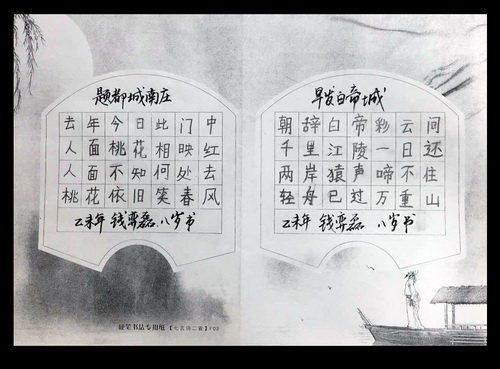 题都城南庄
去年今日此门中
人面桃花相映红
人面不知何处去
桃花依旧笑春风
乙未年 钱奕磊 八岁书
早发白帝城
朝辞白帝彩云间
千里江陵一日还
两岸猿声啼不住
轻舟已过万重山
乙未年 钱奕磊 八岁书
硬笔书法专用纸【七言诗二首】F03